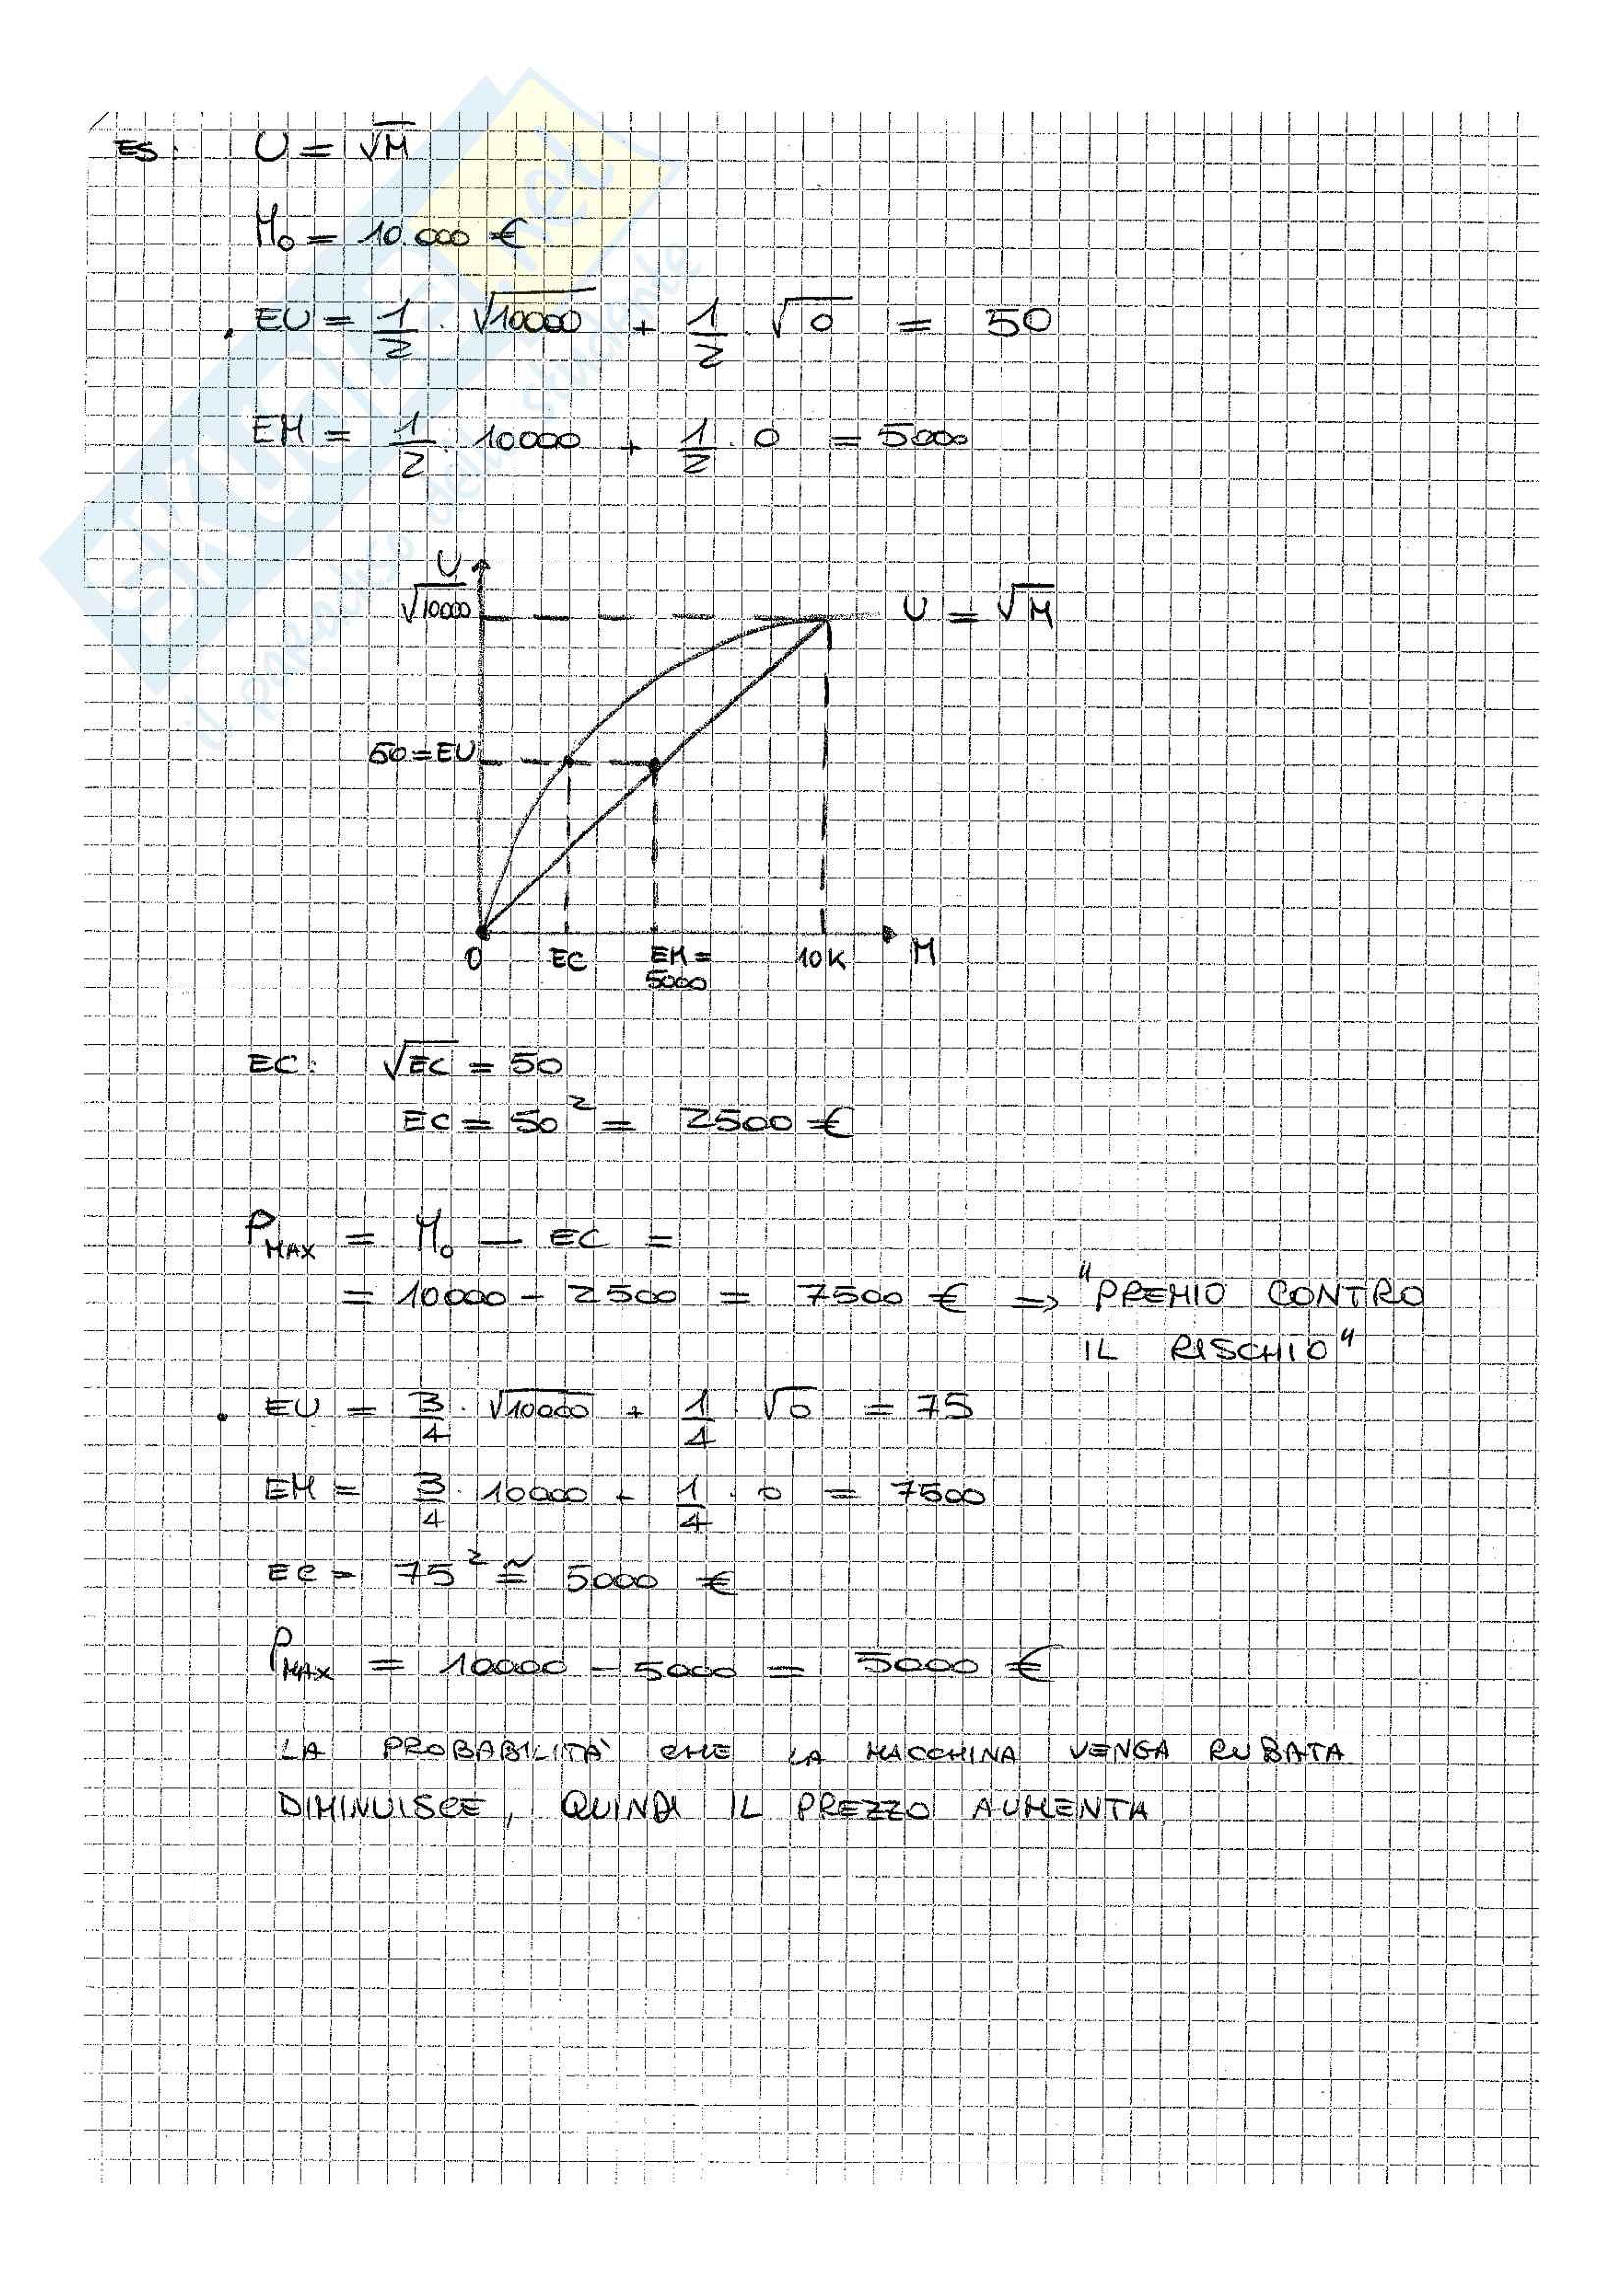 ES: U = √M
M₀ = 10.000 €
. EU = 1/2 · √10000 + 1/2 · √0 = 50
EM = 1/2 · 10000 + 1/2 · 0 = 5000
U
√10000
U = √M
50 = EU
0 EC EM = 10K M
5000
EC: √EC = 50
EC = 50² = 2500 €
P MAX = M₀ − EC =
= 10000 − 2500 = 7500 € => "PREMIO CONTRO
IL RISCHIO"
. EU = 3/4 · √10000 + 1/4 · √0 = 75
EM = 3/4 · 10000 + 1/4 · 0 = 7500
EC = 75² ≅ 5000 €
P MAX = 10000 − 5000 = 5000 €
LA PROBABILITÀ CHE LA MACCHINA VENGA RUBATA
DIMINUISCE, QUINDI IL PREZZO AUMENTA.
SKUOLA.net
il paradiso dello studente